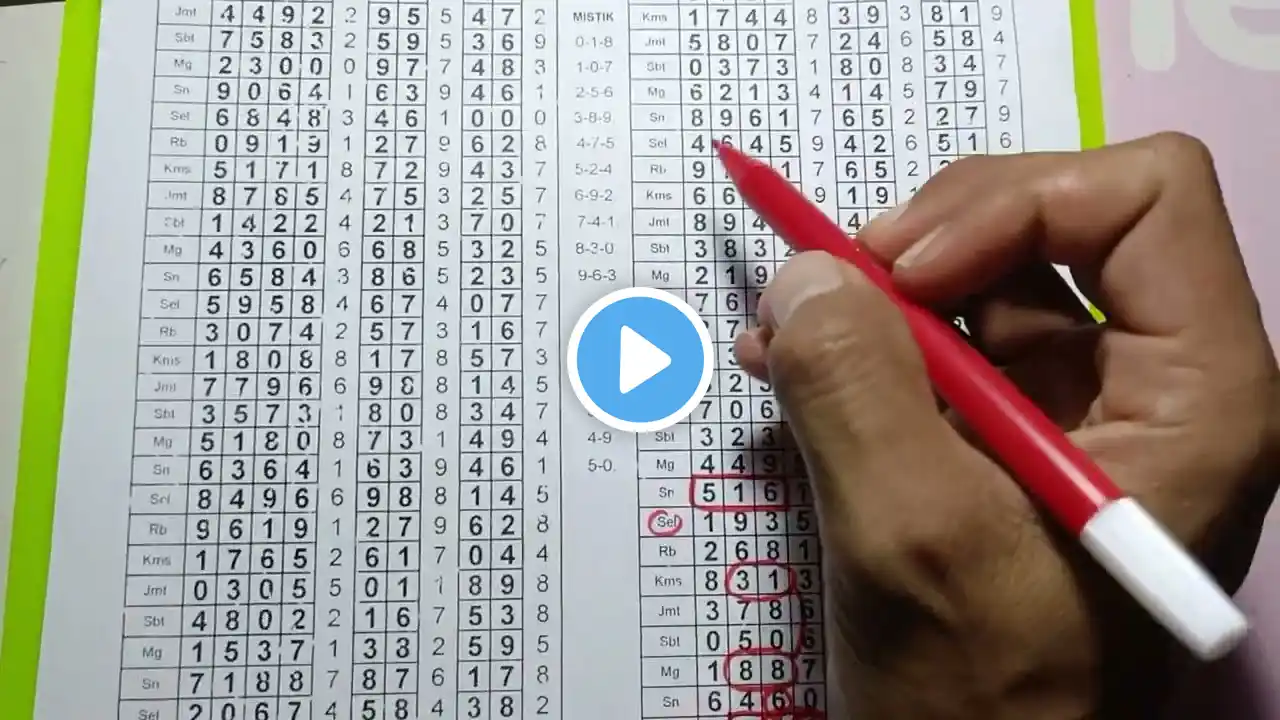 Jmt 4 4 9 2 2 9 5 5 4 7 2
Sbt 7 5 8 3 2 5 9 5 3 6 9
Mg 2 3 0 0 0 9 7 7 4 8 3
Sn 9 0 6 4 1 6 3 9 4 6 1
Sel 6 8 4 8 3 4 6 1 0 0 0
Rb 0 9 1 9 1 2 7 9 6 2 8
Kms 5 1 7 1 8 7 2 9 4 3 7
Jmt 8 7 8 5 4 7 5 3 2 5 7
Sbt 1 4 2 2 4 2 1 3 7 0 7
Mg 4 3 6 0 6 6 8 5 3 2 5
Sn 6 5 8 4 3 8 6 5 2 3 5
Sel 5 9 5 8 4 6 7 4 0 7 7
Rb 3 0 7 4 2 5 7 3 1 6 7
Kms 1 8 0 8 8 1 7 8 5 7 3
Jmt 7 7 9 6 6 9 8 8 1 4 5
Sbt 3 5 7 3 1 8 0 8 3 4 7
Mg 5 1 8 0 8 7 3 1 4 9 4
Sn 6 3 6 4 1 6 3 9 4 6 1
Sel 8 4 9 6 6 9 8 8 1 4 5
Rb 9 6 1 9 1 2 7 9 6 2 8
Kms 1 7 6 5 2 6 1 7 0 4 4
Jmt 0 3 0 5 5 0 1 1 8 9 8
Sbt 4 8 0 2 2 1 6 7 5 3 8
Mg 1 5 3 7 1 3 3 2 5 9 5
Sn 7 1 8 8 7 8 7 6 1 7 8
Sel 2 0 6 7 4 5 8 4 3 8 2
MISTIK
0-1-8
1-0-7
2-5-6
3-8-9.
4-7-5
5-2-4
6-9-2
7-4-1
8-3-0
9-6-3
4-9
5-0.
Kms 1 7 4 4 8 3 9 3 8 1 9
Jmt 5 8 0 7 7 2 4 6 5 8 4
Sbt 0 3 7 3 1 8 0 8 3 4 7
Mg 6 2 1 3 4 1 4 5 7 9 7
Sn 8 9 6 1 7 6 5 2 2 7 9
Sel 4 6 4 5 9 4 2 6 5 1 6
Rb 9 1 7 6 5 2
Kms 6 6 9 1 9
Jmt 8 9 4 4
Sbt 3 8 3
Mg 2 1 9
7 6
7
3
2
7 0 6
Sbt 3 2 3
Mg 4 4 9
Sn 5 1 6 1
Sel 1 9 3 5
Rb 2 6 8 1
Kms 8 3 1 3
Jmt 3 7 8 6
Sbt 0 5 0 6
Mg 1 8 8 7
Sn 6 4 6 0